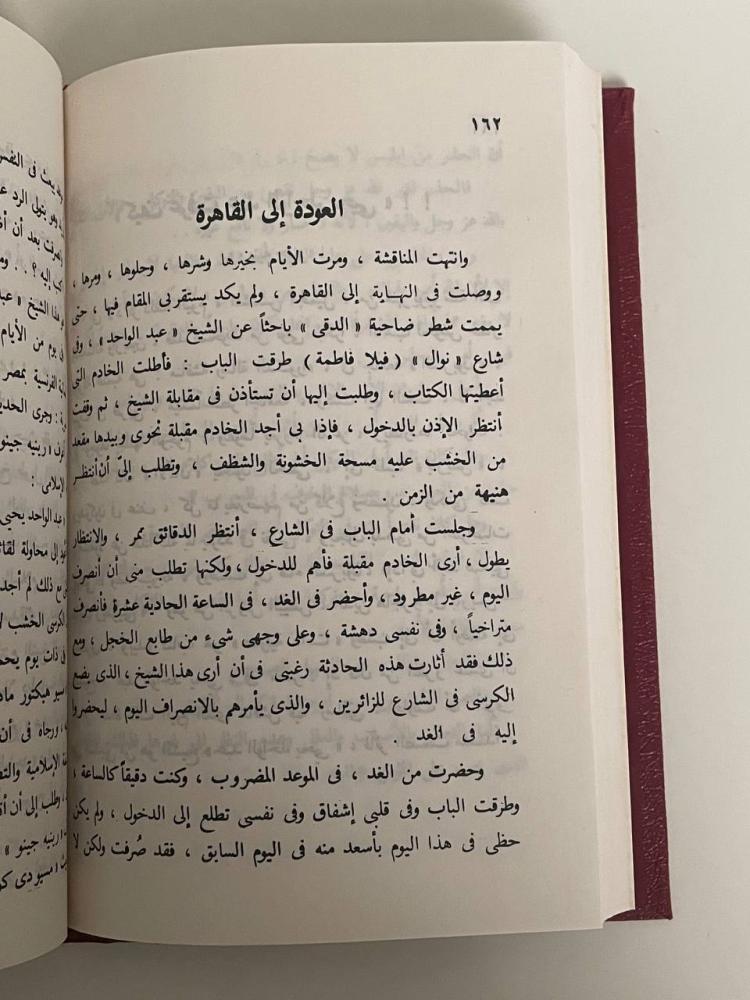 ١٦٢
العودة إلى القاهرة
وانتهت المناقشة ، ومرت الأيام بخيرها وشرها ، وحلوها ، ومرها ،
ووصلت فى النهاية إلى القاهرة ، ولم يكد يستقر بى المقام فيها ، حتى
يممت شطر ضاحية « الدقى » باحثاً عن الشيخ « عبد الواحد » ، وفى
شارع « نوال » ( فيلا فاطمة ) طرقت الباب : فأطلت الخادم التى
أعطيتها الكتاب ، وطلبت إليها أن تستأذن فى مقابلة الشيخ ، ثم وقفت
أنتظر الإذن بالدخول ، فإذا بى أجد الخادم مقبلة نحوى وبيدها مقعد
من الخشب عليه مسحة الخشونة والشظف ، وتطلب إلىّ أن أنتظر
هنيهة من الزمن .
وجلست أمام الباب فى الشارع ، أنتظر الدقائق تمر ، والانتظار
يطول ، أرى الخادم مقبلة فأهم للدخول ، ولكنها تطلب منى أن أنصرف
اليوم ، غير مطرود ، وأحضر فى الغد ، فى الساعة الحادية عشرة فأنصرف
متراخياً ، وفى نفسى دهشة ، وعلى وجهى شىء من طابع الخجل ، ومع
ذلك فقد أثارت هذه الحادثة رغبتى فى أن أرى هذا الشيخ ، الذى يضع
الكرسى فى الشارع للزائرين ، والذى يأمرهم بالانصراف اليوم ، ليحضروا
إليه فى الغد .
وحضرت من الغد ، فى الموعد المضروب ، وكنت دقيقاً كالساعة ،
وطرقت الباب وفى قلبى إشفاق وفى نفسى تطلع إلى الدخول ، ولم يكن
حظى فى هذا اليوم بأسعد منه فى اليوم السابق ، فقد صُرفت ولكن لا